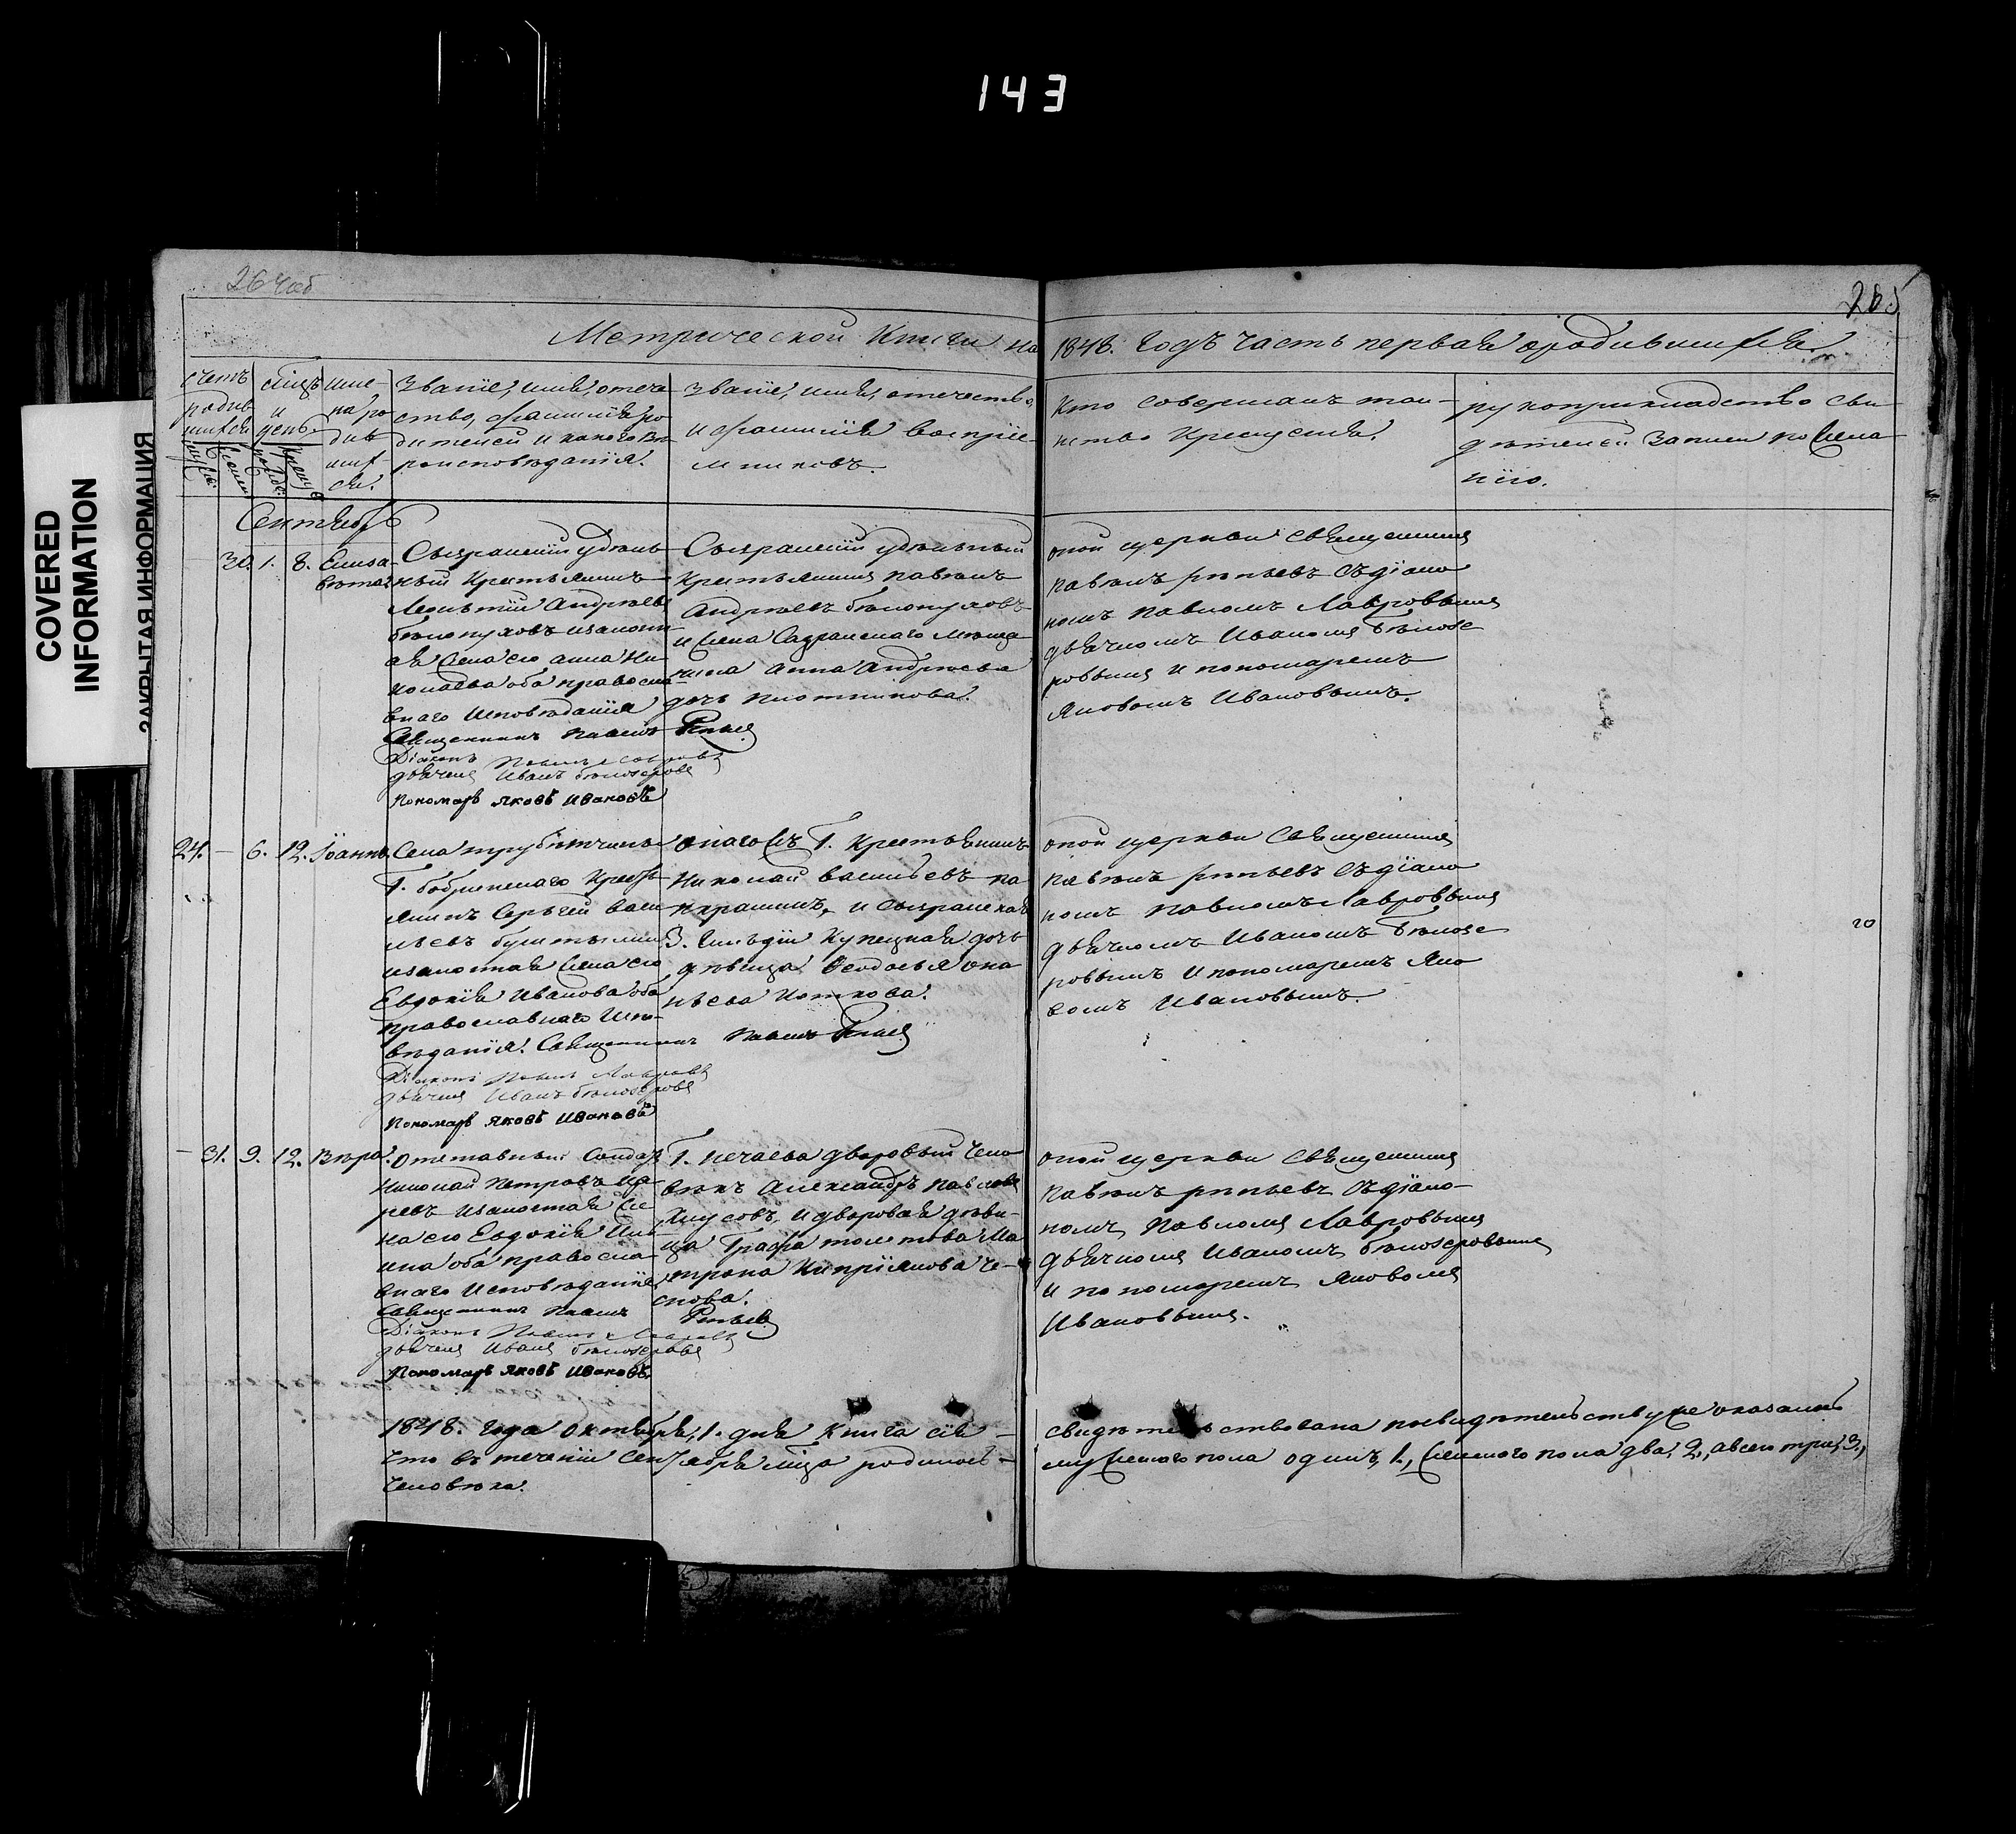 143
COVERED
INFORMATION
ЗАКРЫТАЯ ИНФОРМАЦИЯ
264об
265
Метрической Книги на 1848. годъ часть первая о родившихся.
счетъ родив шихся
мѣсяцъ и день.
име на ро див ших ся.
Званіе, имя, отече
ство, фамилія ро
дителей и какого вѣ
роисповѣданія.
званіе, имя, отечество,
и фамилія воспріе
мниковъ.
Кто совершалъ таи-
нство Крещенія.
рукоприкладство сви
дѣтелей записи по жела
нію.
Сентябрь
30. 1. 8. Елиза
вета.
Сызранскій удѣль
ный Крестьянинъ
Леонтій Андреевъ
бѣлопуховъ и законн
ая жена его анна Ни
колаева оба правосла
внаго исповѣданія
Священникъ Павелъ
Діаконъ Павелъ Лавровъ
дьячекъ Иванъ бѣлозеровъ
Пономарь Яковъ Ивановъ
Сызранскій удѣльный
крестьянинъ павелъ
андреевъ бѣлопуховъ
и жена Сызранскаго мѣща
нина анна андреева
дочь плотникова.
оной церкви священникъ
павелъ рѣпьевъ съ діако
номъ павломъ Лавровымъ
дьячкомъ Иваномъ Бѣлозе
ровымъ и пономаремъ
Яковомъ Ивановымъ.
24. — 6. 12. Іоаннъ.
Села трубѣтчина
Г. бобринскаго Кресть
янинъ Сергѣй васи
льевъ
и законная жена его
Евдокія Иванова оба
православнаго испо-
вѣданія. Священникъ Павелъ
Діаконъ Павелъ Лавровъ
дьячекъ Иванъ бѣлозеровъ
Пономарь Яковъ Ивановъ
онагожъ Г. Крестьянинъ
Николай васильевъ
и сызранская
3. гильдіи Купецкая дочь
дѣвица Ѳеодосья
оной церкви Священникъ
павелъ рѣпьевъ съ діако
номъ павломъ Лавровымъ
дьячкомъ Иваномъ Бѣлозе
ровымъ и пономаремъ Яко
вомъ Ивановымъ
20
— 31. 9. 12. Вѣра.
Отставный Солдатъ
Николай Петровъ
и законная же
на его Евдокія Иль
ина оба правосла
внаго исповѣданія
Священникъ Павелъ
Діаконъ Павелъ Лавровъ
дьячекъ Иванъ бѣлозеровъ
Пономарь Яковъ Ивановъ.
Г. нечаева дворовый чело
вѣкъ Александръ павловъ
и дворовая дѣви
ца Графа толстова Ма
трона Кипріянова Че-
снова.
оной церкви Священникъ
Павелъ рѣпьевъ съ діако-
номъ Павломъ Лавровымъ
дьячкомъ Иваномъ бѣлозеровымъ
и пономаремъ Яковомъ
Ивановымъ.
1848. Года Октября, 1. дня Книга сія — свидѣтельствована по свидѣтельству же оказалось
что въ теченіи Сентября мѣсяца родилось — мужескаго пола одинъ, 1., женскаго пола два, 2., а всего три, 3.,
человѣка.